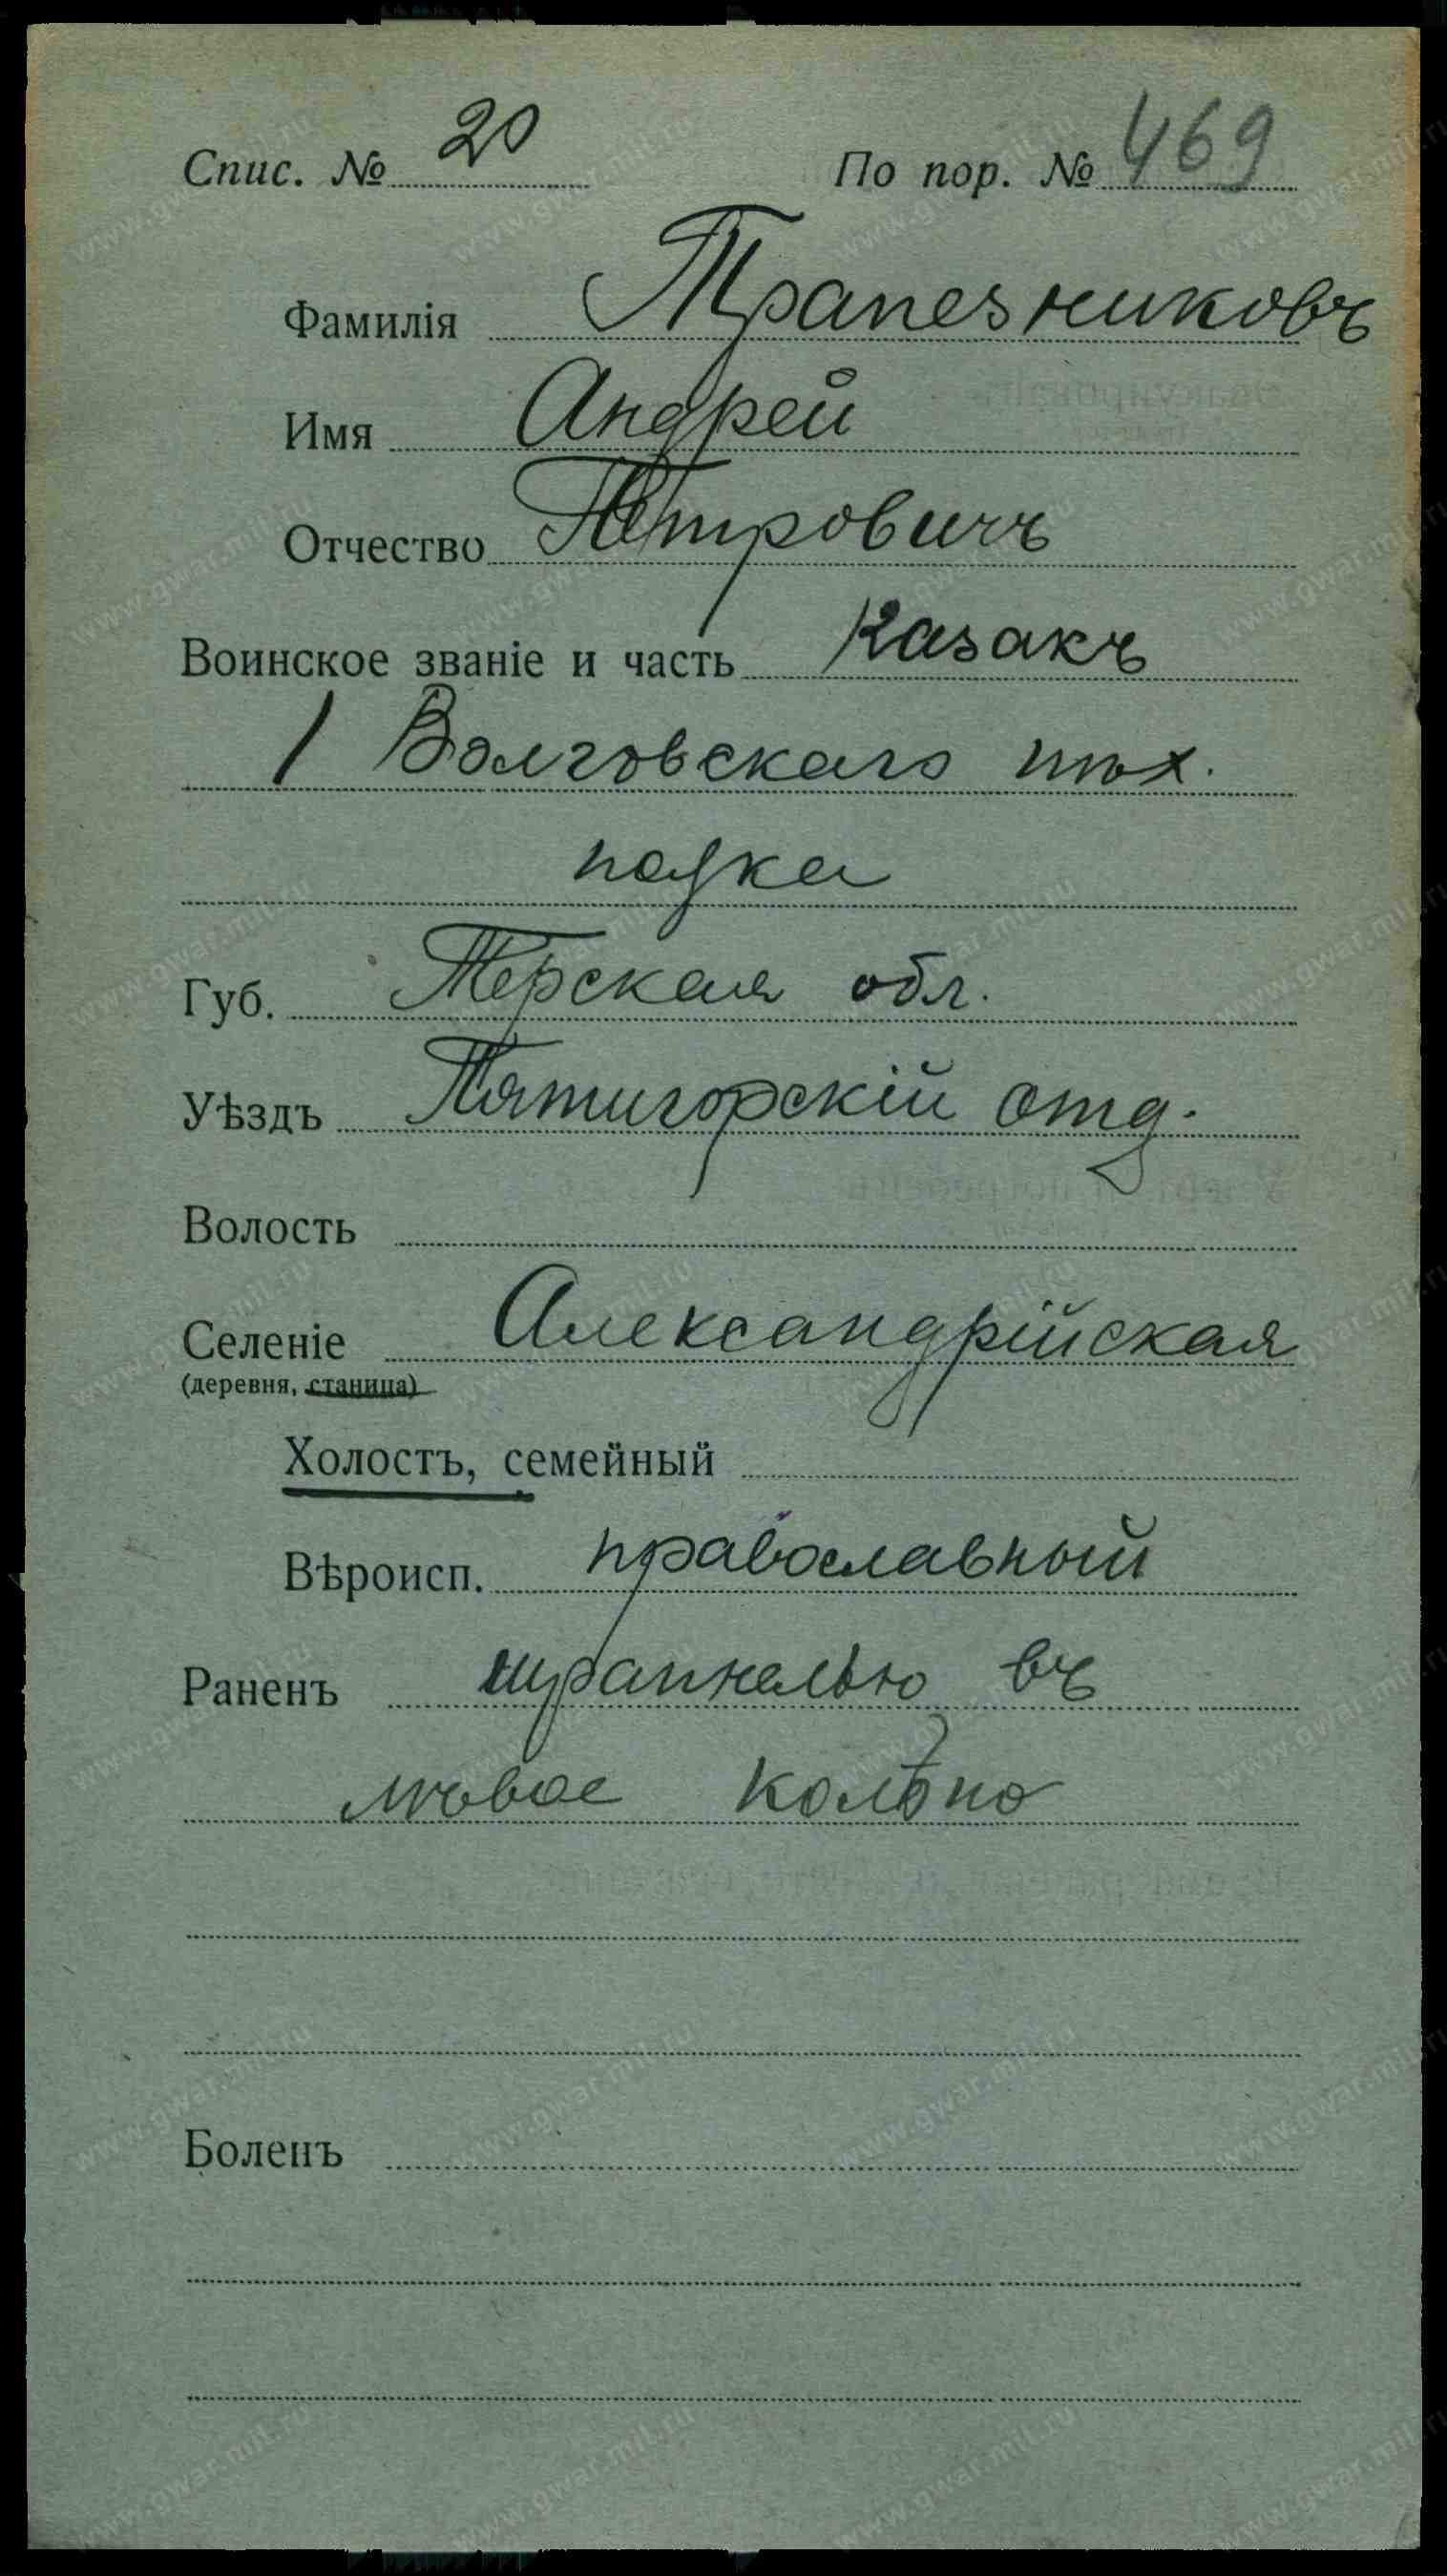 Спис. № 20 По пор. № 469
Фамилія Трапезниковъ
Имя Андрей
Отчество Петровичъ
Воинское званіе и часть Казакъ
1 Волговскаго пѣх.
полка
Губ. Терская обл.
Уѣздъ Пятигорскій отд.
Волость
Селеніе Александрійская
(деревня, станица)
Холостъ, семейный
Вѣроисп. православный
Раненъ шрапнелью въ
лѣвое колѣно
Боленъ